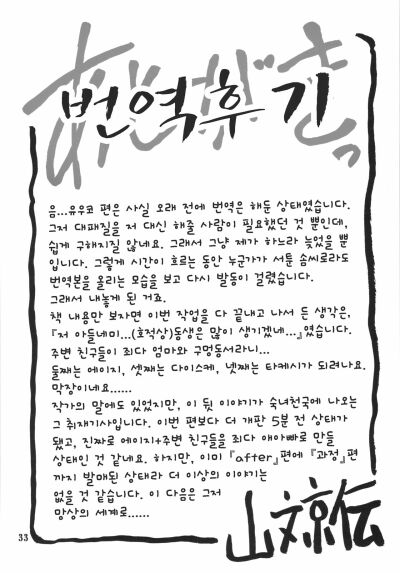 번역후기
음...유우코 편은 사실 오래 전에 번역은 해둔 상태였습니다.
그저 대패질을 저 대신 해줄 사람이 필요했던 것 뿐인데,
쉽게 구해지질 않네요. 그래서 그냥 제가 하느라 늦었을 뿐
입니다. 그렇게 시간이 흐르는 동안 누군가가 서툰 솜씨로라도
번역본을 올리는 모습을 보고 다시 발동이 걸렸습니다.
그래서 내놓게 된 거죠.
책 내용만 보자면 이번 작업을 다 끝내고 나서 든 생각은,
『저 아들네미...(호적상)동생은 많이 생기겠네...』였습니다.
주변 친구들이 죄다 엄마와 구멍동서라니...
둘째는 에이지, 셋째는 다이스케, 넷째는 타케시가 되려나요.
막장이네요......
작가의 말에도 있었지만, 이 뒷 이야기가 숙녀천국에 나오는
그 취재기사입니다. 이번 편보다 더 개판 5분 전 상태가
됐고, 진짜로 에이지+주변 친구들을 죄다 애아빠로 만들
상태인 것 같네요. 하지만, 이미 『after』편에 『과정』편
까지 발매된 상태라 더 이상의 이야기는
없을 것 같습니다. 이 다음은 그저
망상의 세계로......
山文京伝
33